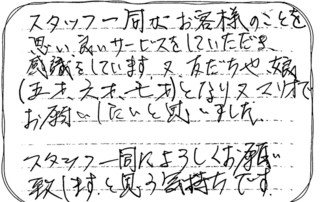 スタッフ一同がお客様のことを
思い、良いサービスをしていただき、
感謝をしています。又友だちや娘
(五才、六才、七才)となり又スリオで
お願いしたいと思いました。
スタッフ一同によろしくお願い
致しますと思う気持ちです